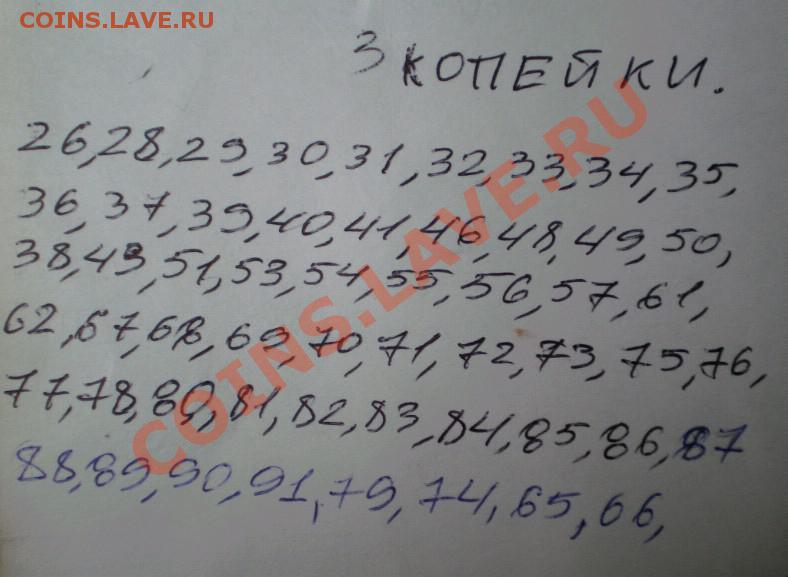 COINS.LAVE.RU
3 КОПЕЙКИ.
26,28,29,30,31,32,33,34,35,
36,37,39,40,41,46,48,49,50,
38,43,51,53,54,55,56,57,61,
62,67,68,69,70,71,72,73,75,76,
77,78,80,81,82,83,84,85,86,87
88,89,90,91,79,74,65,66,
COINS.LAVE.RU